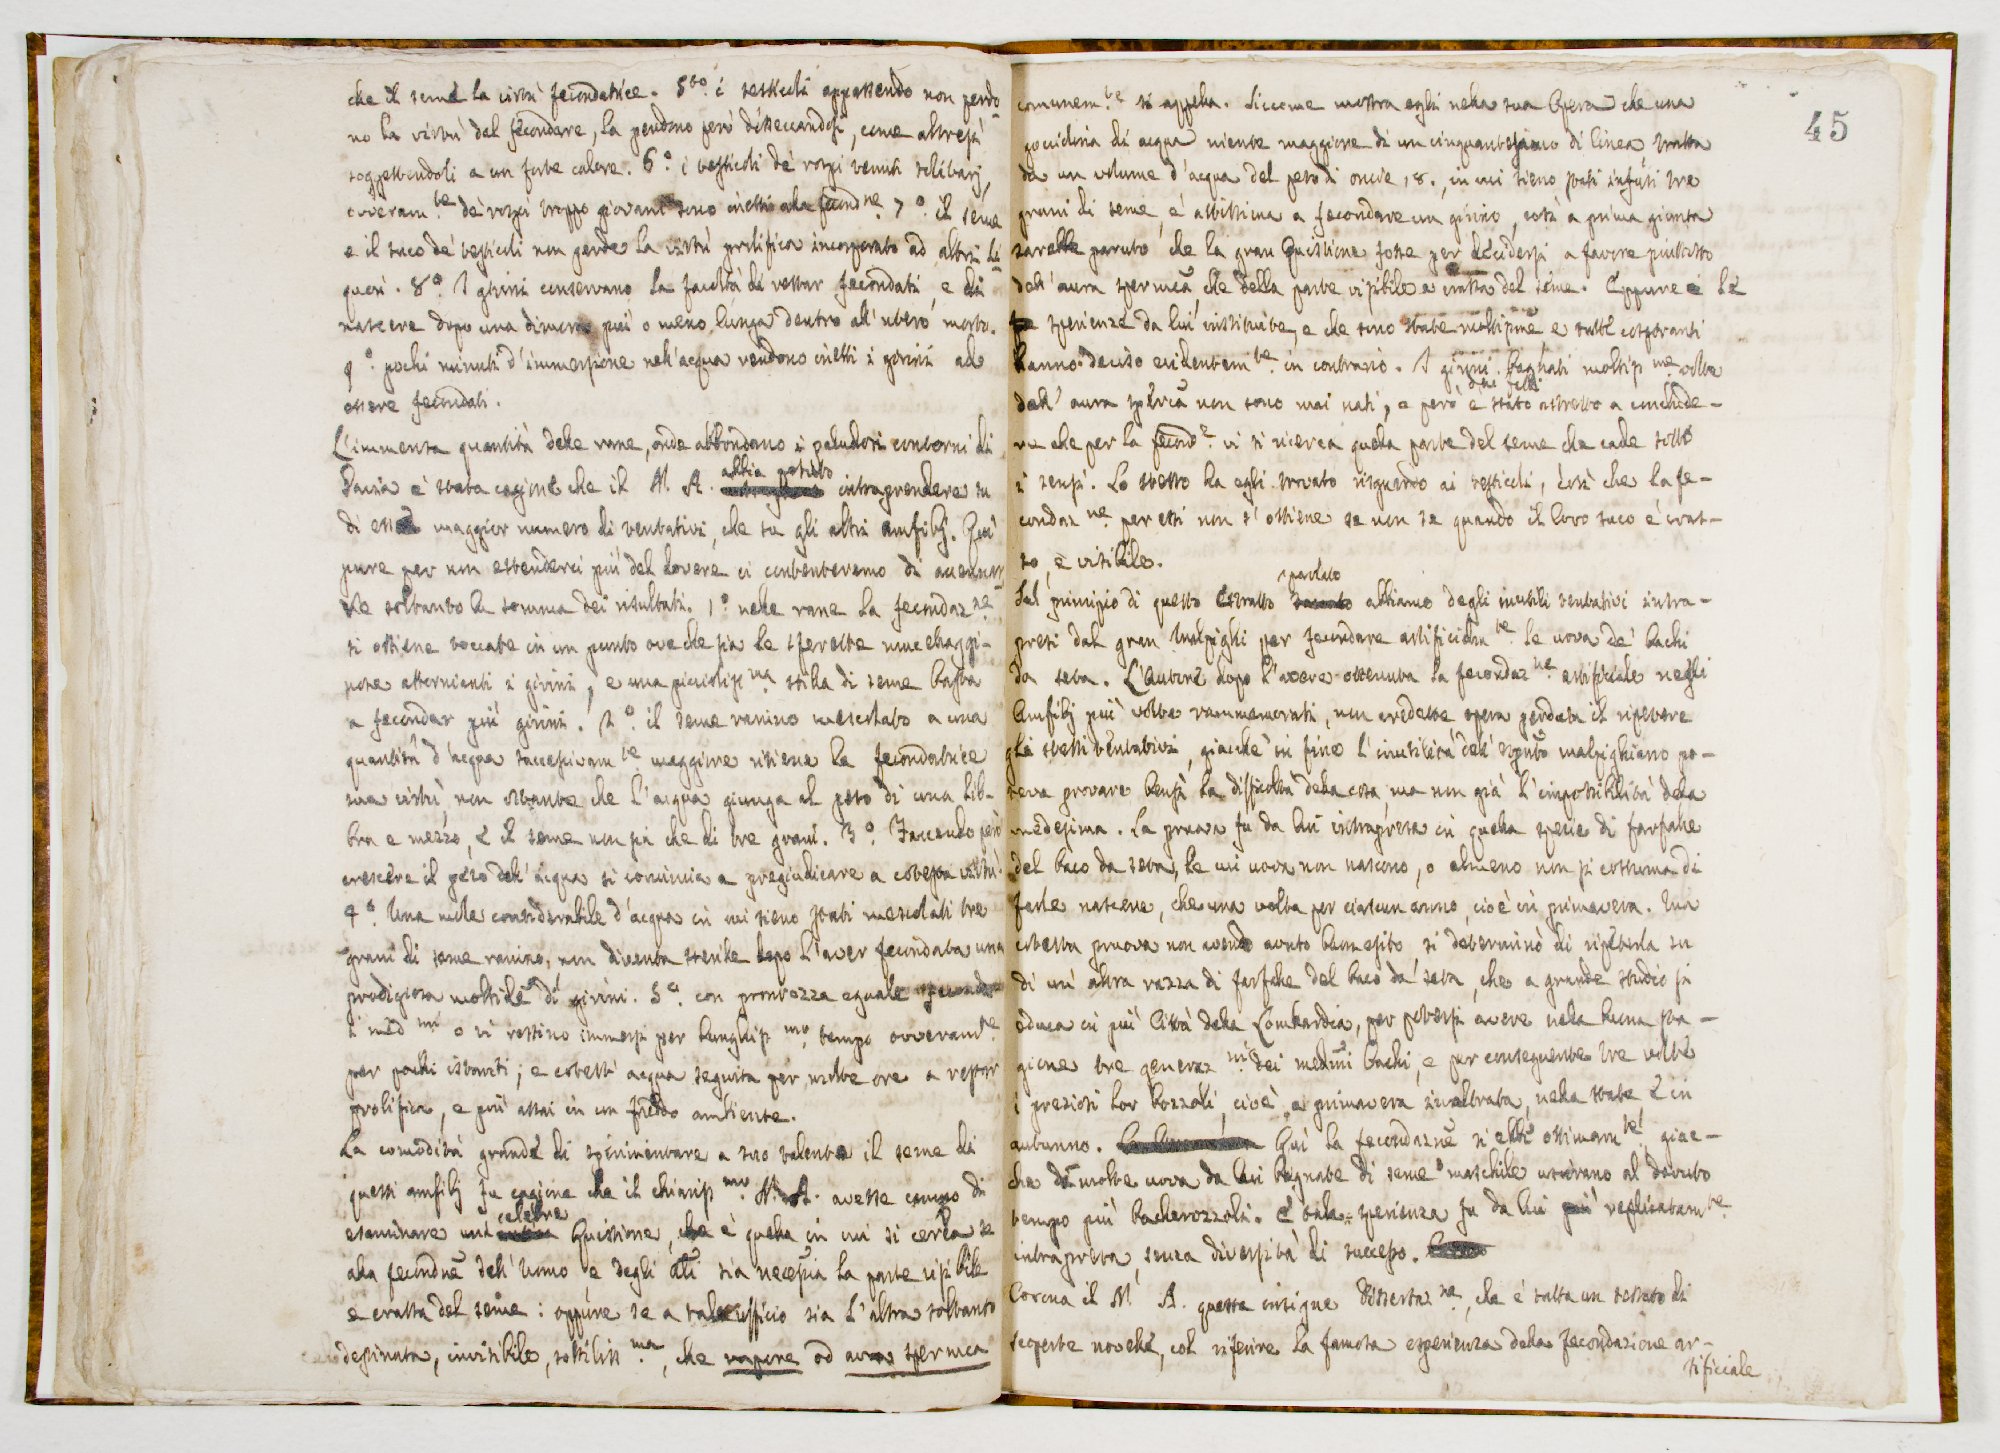 che il seme la virtù fecondatrice. 5to. i testicoli appassendo non perdo-
no la virtù del fecondare, la perdono però disseccandosi, come altresì
soggettandoli a un forte calore. 6o. i testicoli de' rospi tenuti solitarj,
ovveram.te de' rospi troppo giovani sono inetti alla fecond.ne 7o. il seme
e il suco de' testicoli non perde la virtù prolifica incorporato ad altri li-
quori. 8o. I girini conservano la facoltà di restar fecondati, e di
nascere dopo una dimora più o meno lunga dentro all'utero morto.
9o. pochi minuti d'immersione nell'acqua rendono inetti i girini ad
essere fecondati.
L'immensa quantità delle rane, onde abbondano i paludosi contorni di
Pavia è stata cagione che il N. A. abbia potuto intraprendere su
di esse maggior numero di tentativi, che su gli altri amfibj. Qui
pure per non estenderci più del dovere ci contenteremo di accennar-
ne soltanto la somma dei risultati. 1o. nelle rane la fecondaz.ne
si ottiene toccate in un punto ove che sia le sferette mucellaggi-
nose attornianti i girini, e una picciolis.ma stilla di seme basta
a fecondar più girini. 2o. il seme ranino mescolato a una
quantità d'acqua successivam.te maggiore ritiene la fecondatrice
sua virtù, non ostante che l'acqua giunga al peso di una lib-
bra e mezzo, e il seme non sia che di tre grani. 3o. Facendo però
crescere il peso dell'acqua si comincia a pregiudicare a cotesta virtù.
4o. Una mole considerabile d'acqua in cui sieno stati mescolati tre
grani di seme ranino, non diventa sterile dopo l'aver fecondata una
prodigiosa moltitne di girini. 5o. con prontezza eguale feconda
i med.mi o vi restino immersi per lunghis.mo tempo ovveram.te
per pochi istanti; e cotest'acqua seguita per molte ore a restar
prolifica, e più assai in un freddo ambiente.
La comodità grande di sperimentare a suo talento il seme di
questi amfibj fu cagione che il chiaris.mo N. A. avesse campo di
esaminare una celebre Quistione, che è quella in cui si cerca se
alla fecondne dell'Uomo e degli Ali sia necessia la parte visibile
e crassa del seme: oppure se a tale ufficio sia l'altra soltanto
destinata, invisibile, sottilis.ma, che vapore od aura spermca
comunem.te si appella. Siccome mostra egli nella sua Opera che una
45
gocciolina di acqua niente maggiore di un cinquantesimo di linea tratta
da un volume d'acqua del peso di oncie 18., in cui sieno stati infusi tre
grani di seme, è attissima a fecondare un girino, così a prima giunta
sarebbe paruto, che la gran Quistione fosse per decidersi a favore piuttosto
dell'aura spermca, che della parte visibile e crassa del seme. Eppure le
sperienze da lui instituite, e che sono state moltisme, e tutte cospiranti
hanno deciso evidentem.te in contrario. I girini bagnati moltis.me volte
dall'aura spermca non sono mai nati, e però dai fatti è stato astretto a conchiude-
re che per la fecond.e vi si ricerca quella parte del seme che cade sotto
i sensi. Lo stesso ha egli trovato risguardo ai testicoli, così che la fe-
condaz.ne per essi non s'ottiene se non se quando il loro suco è cras-
so, e visibile.
Sul principio di questo Estratto parlato abbiamo degli inutili tentativi intra-
presi dal gran Malpighi per fecondare artificialm.te le uova de' bachi
da seta. L'Autore dopo l'avere ottenuta la fecondaz.ne artificiale negli
Amfibj più volte rammemorati, non credette opera perduta il ripetere
gli stessi tentativi, giacchè in fine l'inutilità dell'espnto malpighiano po-
teva provare bensì la difficoltà della cosa, ma non già l'impossibilità della
medesima. La pruova fu da lui intrapresa in quella spezie di farfalle
del baco da seta, le cui uova non nascono, o almeno non si costuma di
farle nascere, che una volta per ciascun anno, cioè in primavera. Una
cotesta pruova non avendo avuto buonesito, si determinò di ripeterla su
di un'altra razza di farfalle del baco da seta, che a grande studio si
educa in più Città della Lombardia, per potersi avere nella buona sta-
gione tre generaz.ni dei medmi bachi, e per conseguente tre volte
i preziosi lor bozzoli, cioè, a primavera inoltrata, nella state e in
autunno. Qui la fecondazne si ebbe ottimam.te, giac-
che da molte uova da lui bagnate di seme maschile uscirano al dovuto
tempo più bacherozzoli. E tale sperienza fu da lui più replicatam.te
intrapresa, senza diversità di successo.
Corona il N. A. questa insigne Dissertaz.ne, che è tutta un tessuto di
scoperte novelle, col riferire la famosa esperienza della fecondazione ar-
tificiale